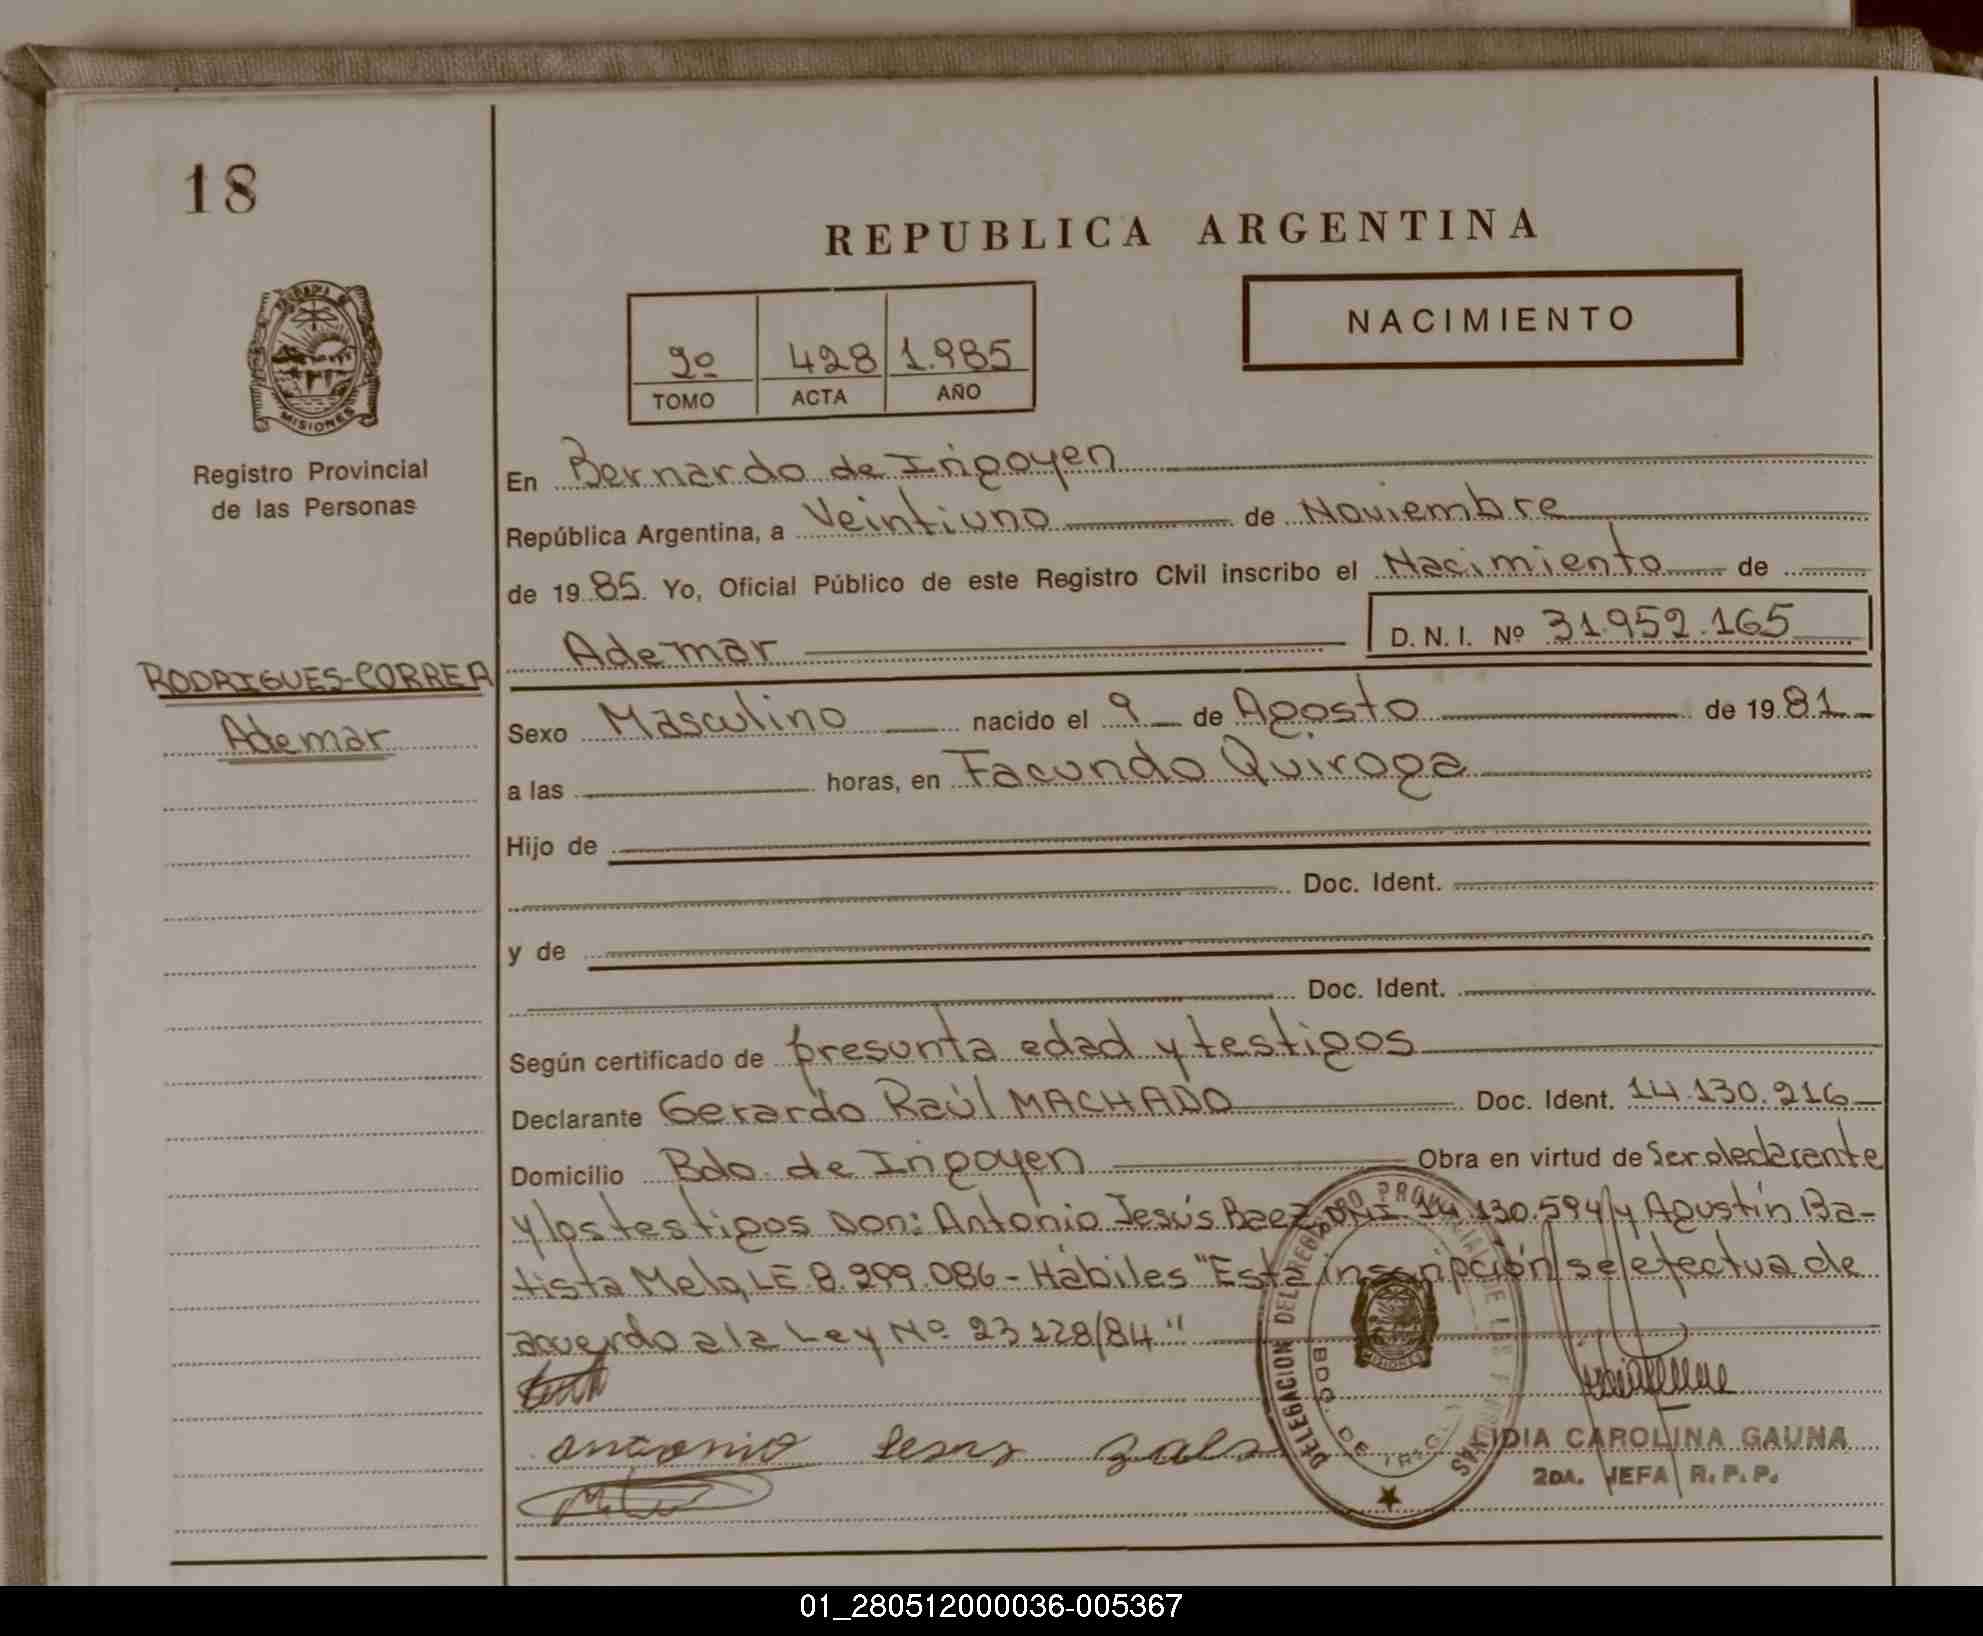 18
REPUBLICA ARGENTINA
NACIMIENTO
2º 428 1.985
TOMO ACTA AÑO
MISIONES
Registro Provincial
de las Personas
En Bernardo de Irigoyen
República Argentina, a Veintiuno de Noviembre
de 1985. Yo, Oficial Público de este Registro Civil inscribo el Nacimiento de
Ademar D.N.I. Nº 31.952.165
RODRIGUES-CORREA
Ademar
Sexo Masculino nacido el 9 de Agosto de 1981
a las horas, en Facundo Quiroga
Hijo de
Doc. Ident.
y de
Doc. Ident.
Según certificado de presunta edad y testigos
Declarante Gerardo Raúl MACHADO Doc. Ident. 14.130.216
Domicilio Bdo. de Irigoyen Obra en virtud de Ser el declarante
y los testigos Don: Antonio Jesús Baez DNI 14.130.594 y Agustín Ba-
tista Melo, LE 8.299.086 - Hábiles "Esta inscripción se efectua de
acuerdo a la Ley Nº 23.128/84"
DELEGACION DEL REGISTRO PROVINCIAL DE LAS PERSONAS
BDO. DE IRIGOYEN
MISIONES
antonio Jesus
LIDIA CAROLINA GAUNA
2DA. JEFA R.P.P.
01_280512000036-005367